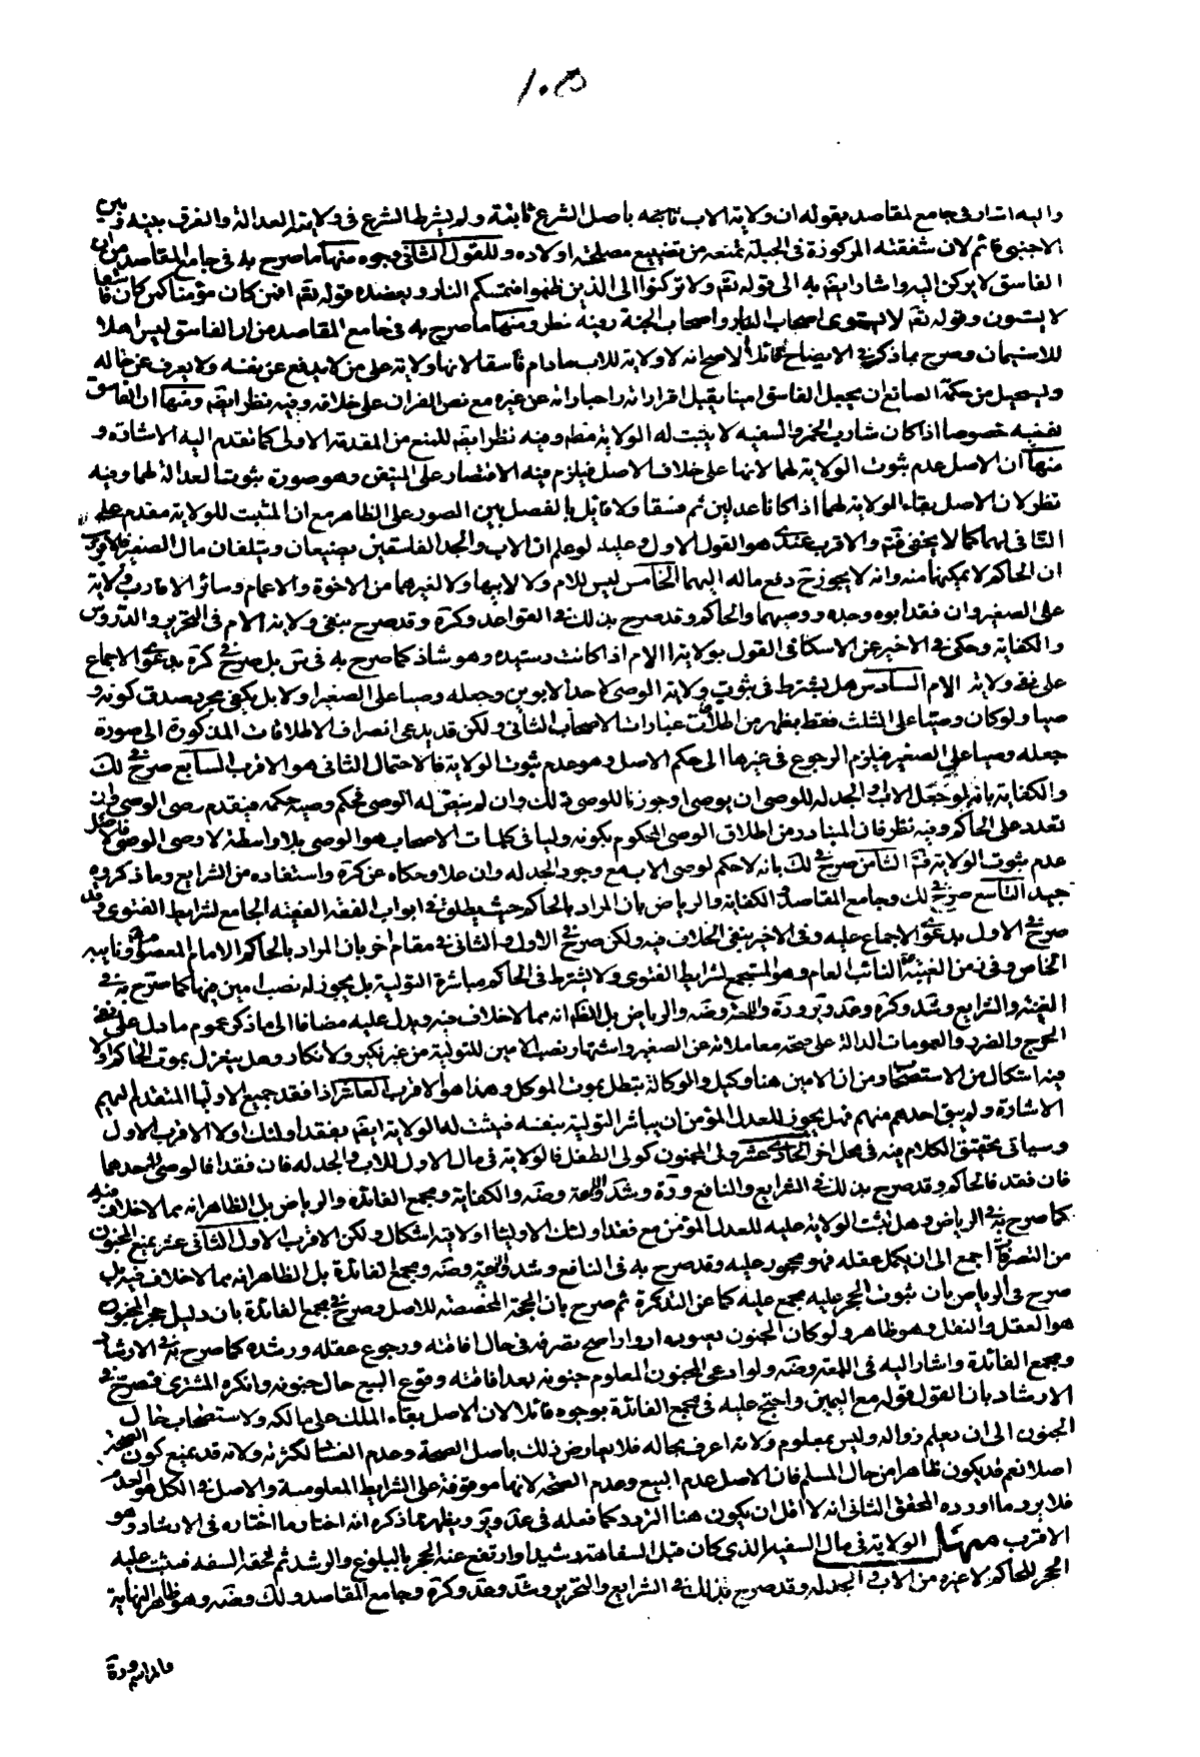 ١٠٥
واليه اشار في جامع المقاصد بقوله ان ولاية الاب ثابتة باصل الشرع ثابتة ولم يشرط الشرع في ولايته العدالة والفرق بينه وبين
الاجنبي قائم لان شفقته المركوزة في الجبلة تمنعه من تضييع مصلحة اولاده وللقول الثاني وجوه منها ما صرح به في جامع المقاصد من ان
الفاسق لا يركن اليه واشار ايضا به الى قوله تقم ولا تركنوا الى الذين ظلموا فتمسكم النار ويعضده قوله تقم افمن كان مؤمنا كمن كان فاسقا
لا يستون وقوله تقم لا يستوى اصحاب النار واصحاب الجنة وفيه نظر ومنها ما صرح به في جامع المقاصد من ان الفاسق ليس اهلا
للاستيمان وصرح بما ذكر في الايضاح قائلا الاصح انه لا ولاية للاب مادام فاسقا لانها ولاية على من لا يدفع عن نفسه ولا يعرف عن حاله
ويستحيل من حكمة الصانع ان يجعل الفاسق امينا يقبل اقراراته واخباراته عن غيره مع نص القران على خلافه وفيه نظر ايضا ومنها ان الفاسق
سفيه خصوصا اذا كان شارب الخمر والسفيه لا يثبت له الولاية قطعا وفيه نظر ايضا للمنع من المقدمة الاولى كما تقدم اليه الاشارة و
منها ان الاصل عدم ثبوت الولاية لهما لانها على خلاف الاصل فيلزم فيه الاقتصار على المتيقن وهو صورة ثبوت العدالة لهما وفيه
نظر لان الاصل بقاء الولاية لهما اذا كانا عدلين ثم فسقا ولا قائل بالفصل بين الصور على الظاهر مع ان المثبت للولاية مقدم على
النافي لها كما لا يخفى فتم والاقرب عندي هو القول الاول وعليه لو علم ان الاب والجد الفاسقين يضيعان ويتلفان مال الصغير فالاقرب
ان الحاكم لا يمكنهما منه وانه لا يجوز ح دفع ماله اليهما الخامس ليس للام ولا لابيها ولا لغيرهما من الاخوة والاعمام وسائر الاقارب ولاية
على الصغير وان فقد ابوه وجده ووصيهما والحاكم وقد صرح بذلك في القواعد وكرة وقد صرح بنفي ولاية الام في التحرير والدروس
والكفاية وحكى في الاخير عن الاسكافي القول بولاية الام اذا كانت رشيدة وهو شاذ كما صرح به في س بل صرح في كرة بدعوى الاجماع
على نفي ولاية الام السادس هل يشترط في ثبوت ولاية الوصي كاحد الابوين وجعله وصيا على الصغير اولا بل يكفي مجرد صدق كونه و
صيا ولو كان وصيا على الثلث فقط يظهر من اطلاقات عبارات الاصحاب الثاني ولكن قد يدعى انصراف الاطلاقات المذكورة الى صورة
جعله وصيا على الصغير فيلزم الرجوع في غيرها الى حكم الاصل وهو عدم ثبوت الولاية فالاحتمال الثاني هو الاقرب السابع صرح في لك
والكفاية بانه لو جعل الاب والجد له للوصي ان يوصي او جوزنا للوصي ذلك وان لم ينص له الموصي فحكم وصيه حكمه فيقدم وصي الوصي وان
تعدد على الحاكم وفيه نظر فان المتبادر من اطلاق الوصي المحكوم بكونه وليا في كلمات الاصحاب هو الوصي بلا واسطة لا وصي الوصي فالاصل
عدم ثبوت الولاية فتم الثامن صرح في لك بانه لا حكم لوصي الاب مع وجود الجد له وان علا وحكاه عن كرة واستفاده من الشرايع وما ذكروه
جيد التاسع صرح في لك وجامع المقاصد والكفاية والرياض بان المراد بالحاكم حيث يطلق في ابواب الفقه الفقيه الجامع لشرايط الفتوى وقد
صرح في الاول بدعوى الاجماع عليه وفي الاخير بنفي الخلاف فيه ولكن صرح في الاول والثاني في مقام اخر بان المراد بالحاكم الامام المعصوم ونايبه
الخاص وفي زمن الغيبة النائب العام وهو المستجمع لشرايط الفتوى ولا يشترط في الحاكم مباشرة التولية بل يجوز له نصب امين فيها كما صرح به في
الغنية والشرايع وشد وكرة وعد وير ودة واللمعة وضه والرياض بل الظ انه مما لا خلاف فيه ويدل عليه مضافا الى ما ذكر عموم ما دل على نفي
الحرج والضرر والعمومات الدالة على صحة معاملاته عن الصغير واشتهار نصب الامين للتولية من غير نكير ولا انكار وهل ينعزل بموت الحاكم او لا
فيه اشكال من الاستصحاب ومن ان الامين هنا وكيل والوكالة تبطل بموت الموكل وهذا هو الاقرب العاشر اذا فقد جميع الاولياء المتقدم اليهم
الاشارة ولم يبق احدهم منهم فهل يجوز للعدل المؤمن ان يباشر التولية بنفسه فيثبت له الولاية ايضا بفقد اولئك او لا الاقرب الاول
وسياتي تحقيق الكلام فيه في محل اخر الحادي عشر ولي المجنون كولي الطفل فالولاية في ماله الاول للاب والجد له فان فقدا فالوصي لاحدهما
فان فقد فالحاكم وقد صرح بذلك في الشرايع والنافع ودة وشد واللمعة وضه والكفاية ومجمع الفائدة والرياض بل الظاهر انه مما لا خلاف فيه
كما صرح به في الرياض وهل يثبت الولاية عليه للعدل المؤمن مع فقد اولئك الاولياء او لا فيه اشكال ولكن الاقرب الاول الثاني عشر يمنع المجنون
من التصرفات اجمع الى ان يكمل عقله فهو محجور عليه وقد صرح به في النافع وشد واللمعة وضه ومجمع الفائدة بل الظاهر انه مما لا خلاف فيه بل
صرح في الرياض بان ثبوت الحجر عليه مجمع عليه كما عن التذكرة ثم صرح بان الحجة المخصصة للاصل وصرح في مجمع الفائدة بان دليل حجر المجنون
هو العقل والنقل وهو ظاهر ولو كان المجنون يعتوره ادوارا صح تصرفه في حال افاقته ورجوع عقله ورشده كما صرح به في الارشاد
ومجمع الفائدة واشار اليه في اللمعة وضه ولو ادعى المجنون المعلوم جنونه بعد افاقته وقوع البيع حال جنونه وانكره المشترى فصرح في
الارشاد بان القول قوله مع اليمين واحتج عليه في مجمع الفائدة بوجوه قائلا لان الاصل بقاء الملك على مالكه ولاستصحاب حال
الجنون الى ان يعلم زواله وليس بمعلوم ولانه اعرف بحاله فلا يعارض ذلك باصل الصحة وعدم الفساد لكثرته ولانه قد يمنع كون الصحة
اصلا نعم قد يكون ظاهرا من حال المسلم فان الاصل عدم البيع وعدم الصحة لانها موقوفة على الشرايط المعلومة والاصل في الكل هو العدم
فلا يرد ما اورده المحقق الثاني انه لا اقل ان يكون هنا التردد كما فعله في عد وير ويظهر مما ذكره انه اختار ما اختاره في الارشاد وهو
الاقرب منهل الولاية في مال السفيه الذي كان قبل السفاهة رشيدا وارتفع عنه الحجر بالبلوغ والرشد ثم لحقه السفه فيثبت عليه
الحجر للحاكم لا غيره من الاب والجد له وقد صرح بذلك في الشرايع والتحرير وشد وعد وكرة وجامع المقاصد ولك وضه وهو ظاهر النهاية
والمراسم ودة